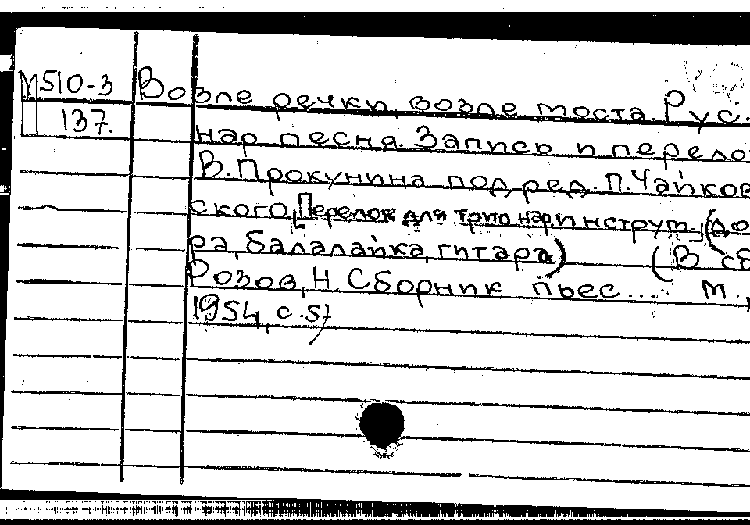 М510-3 Возле речки, возле моста. Рус.
137. нар песня. Запись и перело
В. Прокунина под ред. П. Чайков
ского, [Перелож для трио нар инструм., (до
ра, балалайка, гитара) (В сб
Розов, Н. Сборник пьес... М.,
1954, с. 57)